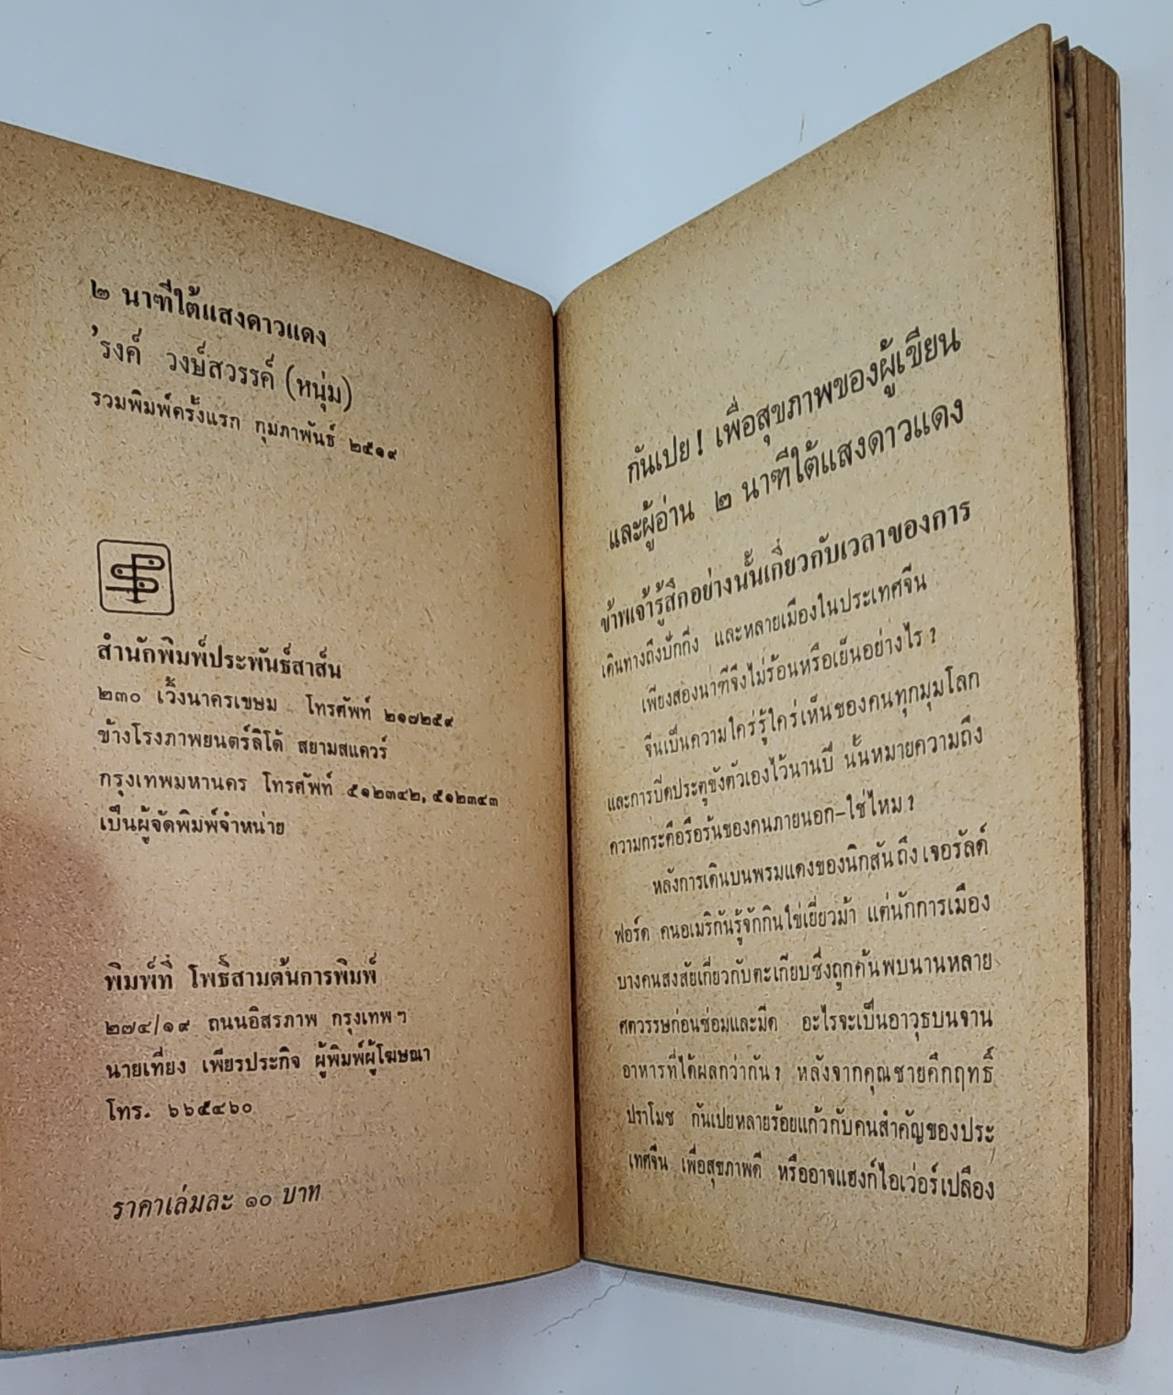 ๒ นาฑีใต้แสงดาวแดง
’รงค์ วงษ์สวรรค์ (หนุ่ม)
รวมพิมพ์ครั้งแรก กุมภาพันธ์ ๒๕๑๙
สำนักพิมพ์ประพันธ์สาส์น
๒๓๐ เวิ้งนาครเขษม โทรศัพท์ ๒๑๗๒๕๙
ข้างโรงภาพยนตร์ลิโด้ สยามสแควร์
กรุงเทพมหานคร โทรศัพท์ ๕๑๒๓๔๒, ๕๑๒๓๔๓
เป็นผู้จัดพิมพ์จำหน่าย
พิมพ์ที่ โพธิ์สามต้นการพิมพ์
๒๗๔/๑๙ ถนนอิสรภาพ กรุงเทพฯ
นายเที่ยง เพียรประกิจ ผู้พิมพ์ผู้โฆษณา
โทร. ๖๖๕๔๖๐
ราคาเล่มละ ๑๐ บาท
กันเปย ! เพื่อสุขภาพของผู้เขียน
และผู้อ่าน ๒ นาฑีใต้แสงดาวแดง
ข้าพเจ้ารู้สึกอย่างนั้นเกี่ยวกับเวลาของการ
เดินทางถึงปักกิ่ง และหลายเมืองในประเทศจีน
เพียงสองนาฑีจึงไม่ร้อนหรือเย็นอย่างไร ?
จีนเป็นความใคร่รู้ใคร่เห็นของคนทุกมุมโลก
และการปิดประตูขังตัวเองไว้นานปี นั้นหมายความถึง
ความกระตือรือร้นของคนภายนอก–ใช่ไหม ?
หลังการเดินบนพรมแดงของนิกสัน ถึง เจอรัลด์
ฟอร์ด คนอเมริกันรู้จักกินไข่เยี่ยวม้า แต่นักการเมือง
บางคนสงสัยเกี่ยวกับตะเกียบซึ่งถูกค้นพบนานหลาย
ศตวรรษก่อนซ่อมและมีด อะไรจะเป็นอาวุธบนจาน
อาหารที่ได้ผลกว่ากัน ? หลังจากคุณชายคึกฤทธิ์
ปราโมช กันเปยหลายร้อยแก้วกับคนสำคัญของประ
เทศจีน เพื่อสุขภาพดี หรืออาจแฮงก์โอเว่อร์เปลือง